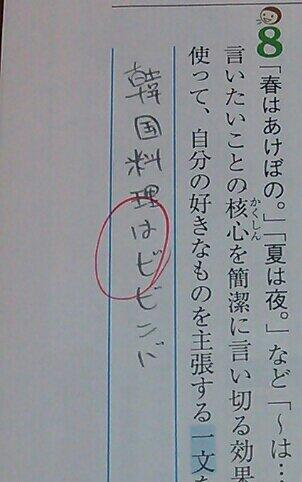 8
「春はあけぼの。」「夏は夜。」など「〜は…
言いたいことの核心を簡潔に言い切る効果
かくしん
使って、自分の好きなものを主張する一文を
韓国料理はビビンバ